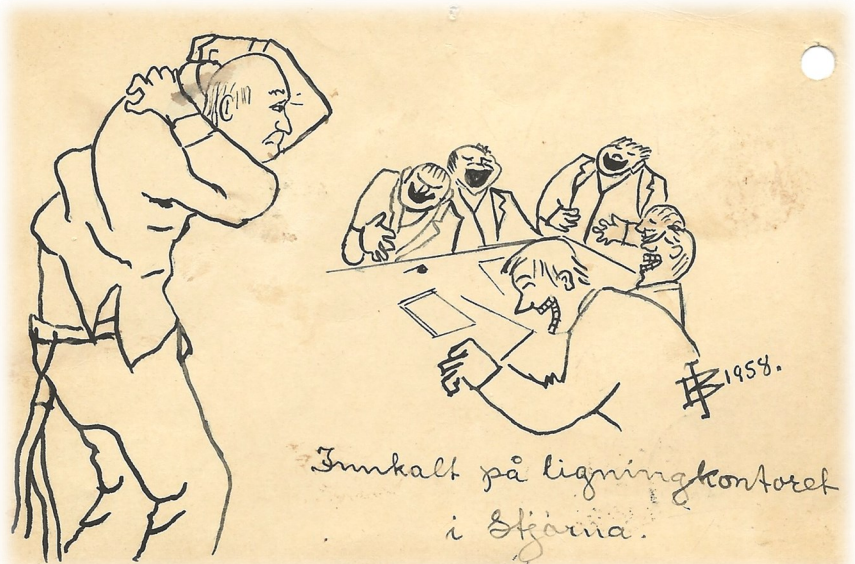 1958.
Innkalt på ligningkontoret
i Stjørna.